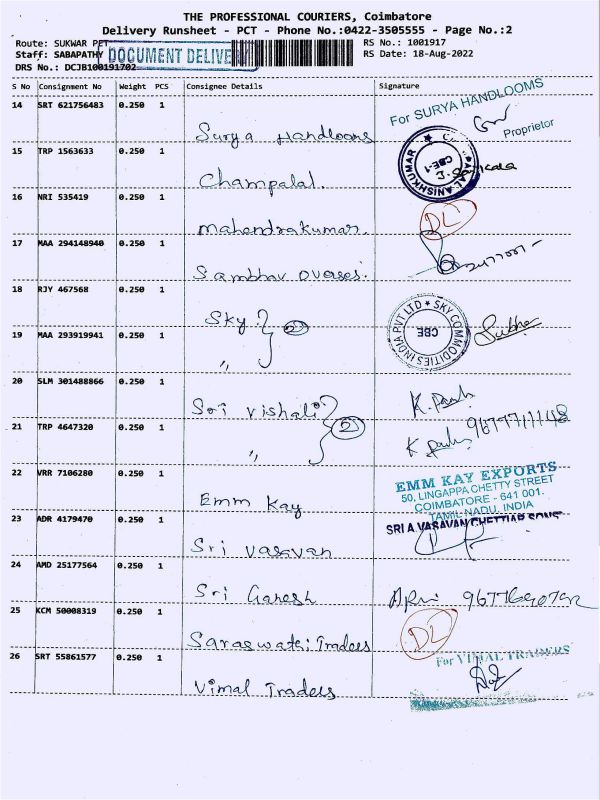 THE PROFESSIONAL COURIERS, Coimbatore
Delivery Runsheet - PCT - Phone No.:0422-3505555 - Page No.:2
Route: SUKWAR PET
RS No.: 1001917
Staff: SABAPATHY
DOCUMENT DELIVER
RS Date: 18-Aug-2022
DRS No.: DCJB100191702
S No Consignment No Weight PCS Consignee Details Signature
14 SRT 621756483 0.250 1 Surya Handlooms
For SURYA HANDLOOMS
Proprietor
15 TRP 1563633 0.250 1 Champalal.
CBE-1
16 NRI 535419 0.250 1 Mahendrakumar.
DL
17 MAA 294148940 0.250 1 Sambhav Overses.
18 RJY 467568 0.250 1 Sky
SKY COMMODITIES INDIA PVT LTD
CBE
19 MAA 293919941 0.250 1 "
2
20 SLM 301488866 0.250 1 Sri Vishali
K.
21 TRP 4647320 0.250 1 "
2
K
22 VRR 7106280 0.250 1 Emm Kay
EMM KAY EXPORTS
50, LINGAPPA CHETTY STREET
COIMBATORE - 641 001.
TAMIL NADU, INDIA
23 ADR 4179470 0.250 1 Sri Vasavan
SRI A.VASAVAN CHETTIAR SONS
24 AMD 25177564 0.250 1 Sri Ganesh
25 KCM 50008319 0.250 1 Saraswathi Traders
DL
26 SRT 55861577 0.250 1 Vimal Traders
For VIMAL TRADERS